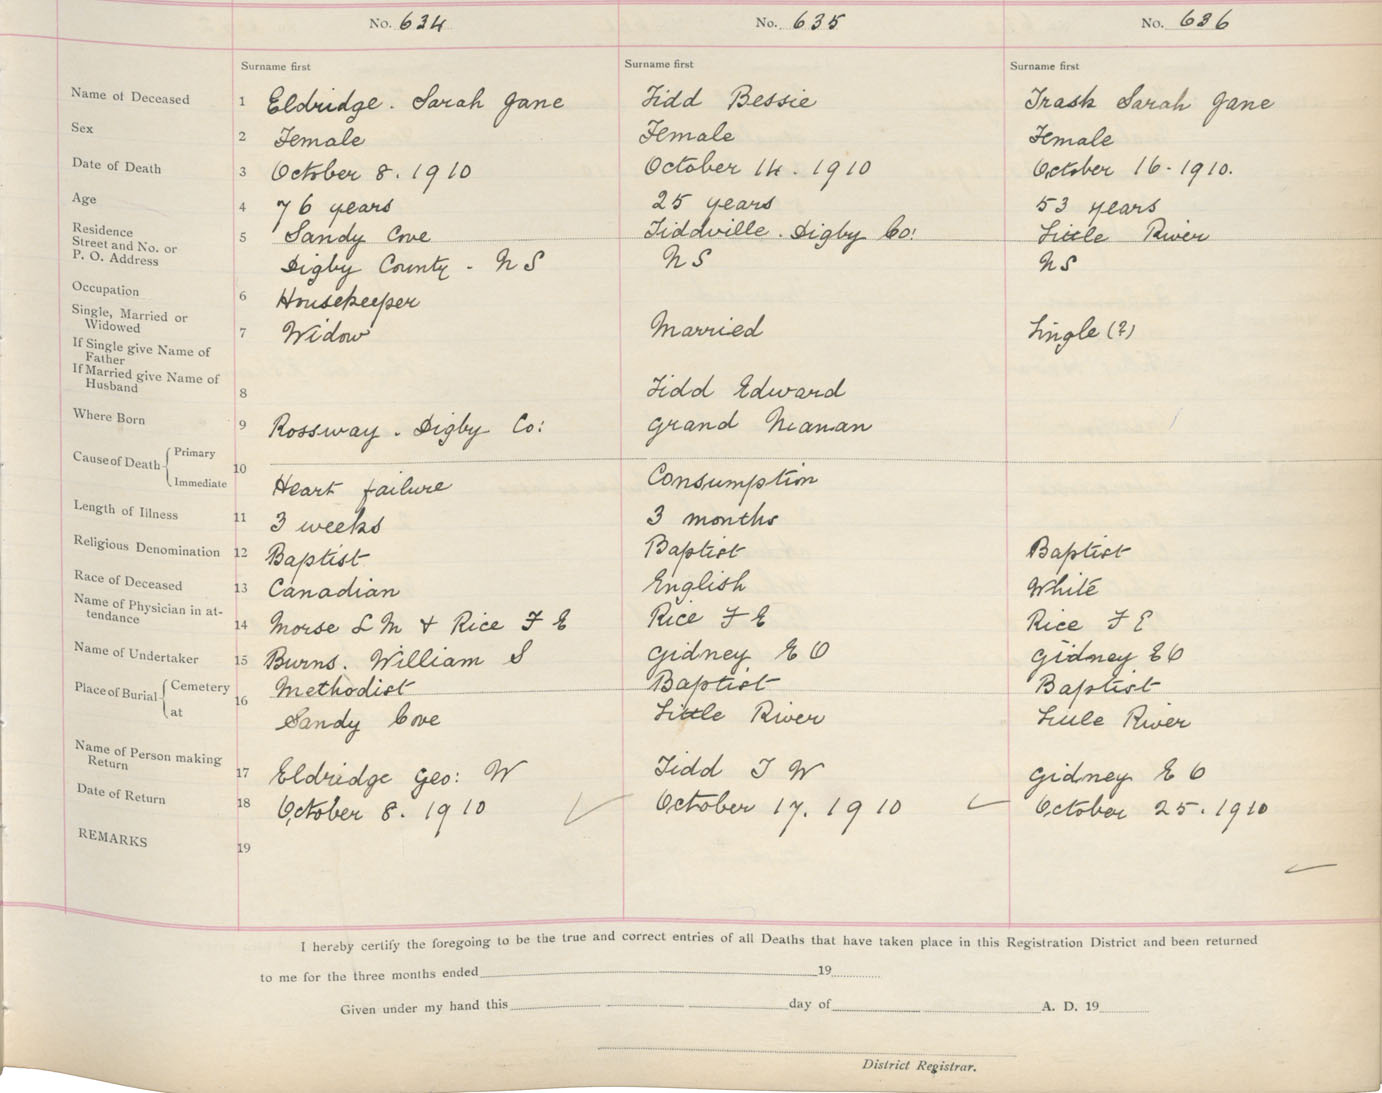 No. 634 No. 635 No. 636
Surname first Surname first Surname first
Name of Deceased 1 Eldridge. Sarah Jane Tidd Bessie Trask Sarah Jane
Sex 2 Female Female Female
Date of Death 3 October 8. 1910 October 14. 1910 October 16. 1910.
Age 4 76 years 25 years 53 years
Residence 5 Sandy Cove Tiddville. Digby Co: Little River
Street and No. or
P. O. Address Digby County - N S N S N S
Occupation 6 Housekeeper
Single, Married or
Widowed 7 Widow Married Single (?)
If Single give Name of
Father
If Married give Name of
Husband 8 Tidd Edward
Where Born 9 Rossway. Digby Co: Grand Manan
Cause of Death { Primary
10
Immediate Heart failure Consumption
Length of Illness 11 3 weeks 3 months
Religious Denomination 12 Baptist Baptist Baptist
Race of Deceased 13 Canadian English White
Name of Physician in at-
tendance 14 Morse L M & Rice F E Rice F E Rice F E
Name of Undertaker 15 Burns. William S Gidney E O Gidney E O
Place of Burial { Cemetery Methodist Baptist Baptist
16
at Sandy Cove Little River Little River
Name of Person making
Return 17 Eldridge Geo: W Tidd T W Gidney E O
Date of Return 18 October 8. 1910 October 17. 1910 October 25. 1910
REMARKS 19
I hereby certify the foregoing to be the true and correct entries of all Deaths that have taken place in this Registration District and been returned
to me for the three months ended 19
Given under my hand this day of A. D. 19
District Registrar.